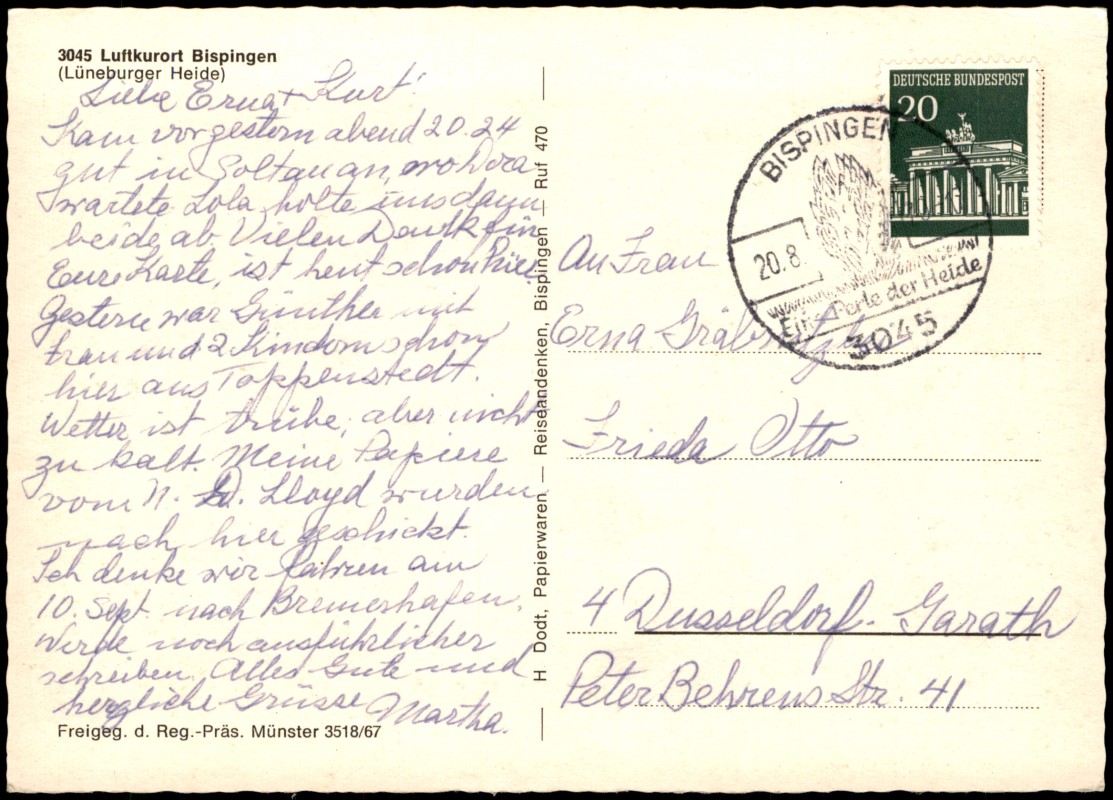 3045 Luftkurort Bispingen
(Lüneburger Heide)
Liebe Erna + Kurt!
Kam vorgestern abend 20.24
gut in Soltau an, wo Dora
wartete Lola holte uns dann
beide ab. Vielen Dank für
Eure Karte, ist heut schon hier
Gestern war Günther mit
Frau und 2 Kindern schon
hier aus Toppenstedt.
Wetter ist trübe, aber nicht
zu kalt. Meine Papiere
vom N. D. Lloyd wurden
nach hier geschickt.
Ich denke wir fahren am
10. Sept. nach Bremerhafen.
Werde noch ausführlicher
schreiben. Alles Gute und
herzliche Grüsse Martha.
Freigeg. d. Reg.-Präs. Münster 3518/67
H Dodt, Papierwaren — Reiseandenken, Bispingen — Ruf 470
DEUTSCHE BUNDESPOST
20
BISPINGEN
20.8.
Eine Perle der Heide
3045
An Frau
Erna
Frieda Otto
4 Dusseldorf-Garath
Peter Behrens Str. 41